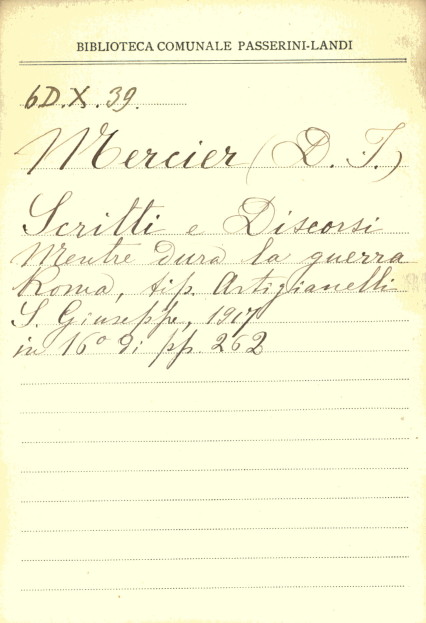 BIBLIOTECA COMUNALE PASSERINI-LANDI
6D.X.39.
Mercier (D. J.)
Scritti e Discorsi
Mentre dura la guerra
Roma, tip. Artigianelli
S. Giuseppe, 1917
in 16º di pp. 262